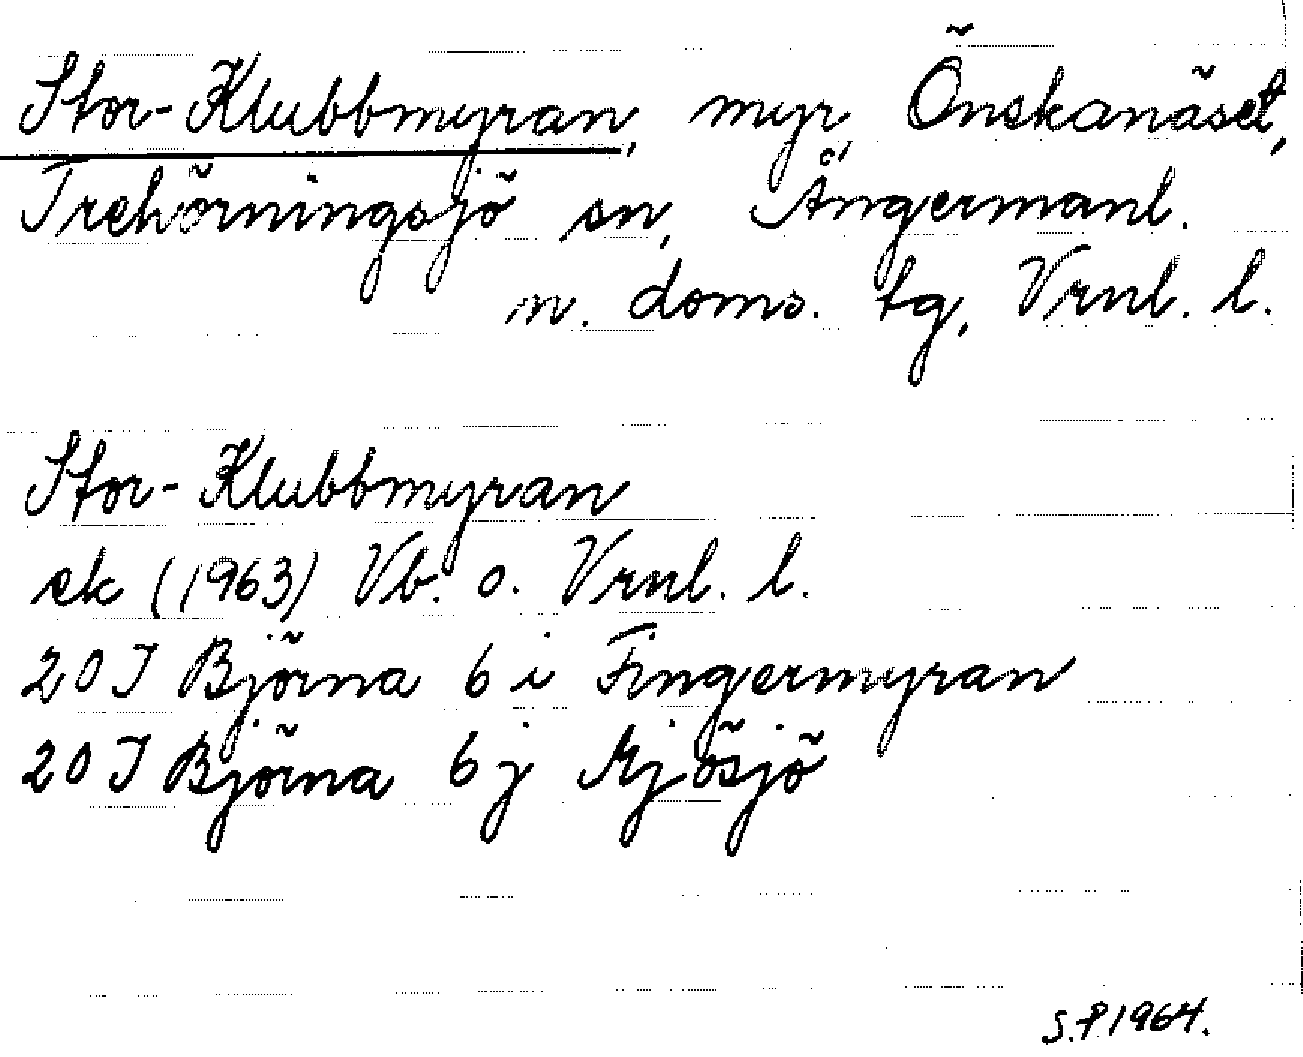 Stor-Klubbmyran, myr, Önskanäset,
Trehörningsjö sn, Ångermanl.
n. doms. tg, Vrnl. l.
Stor-Klubbmyran
ek (1963) Vb. o. Vrnl. l.
20 J Björna 6 i Fingermyran
20 J Björna 6 j Mjösjö
S.P 1964.